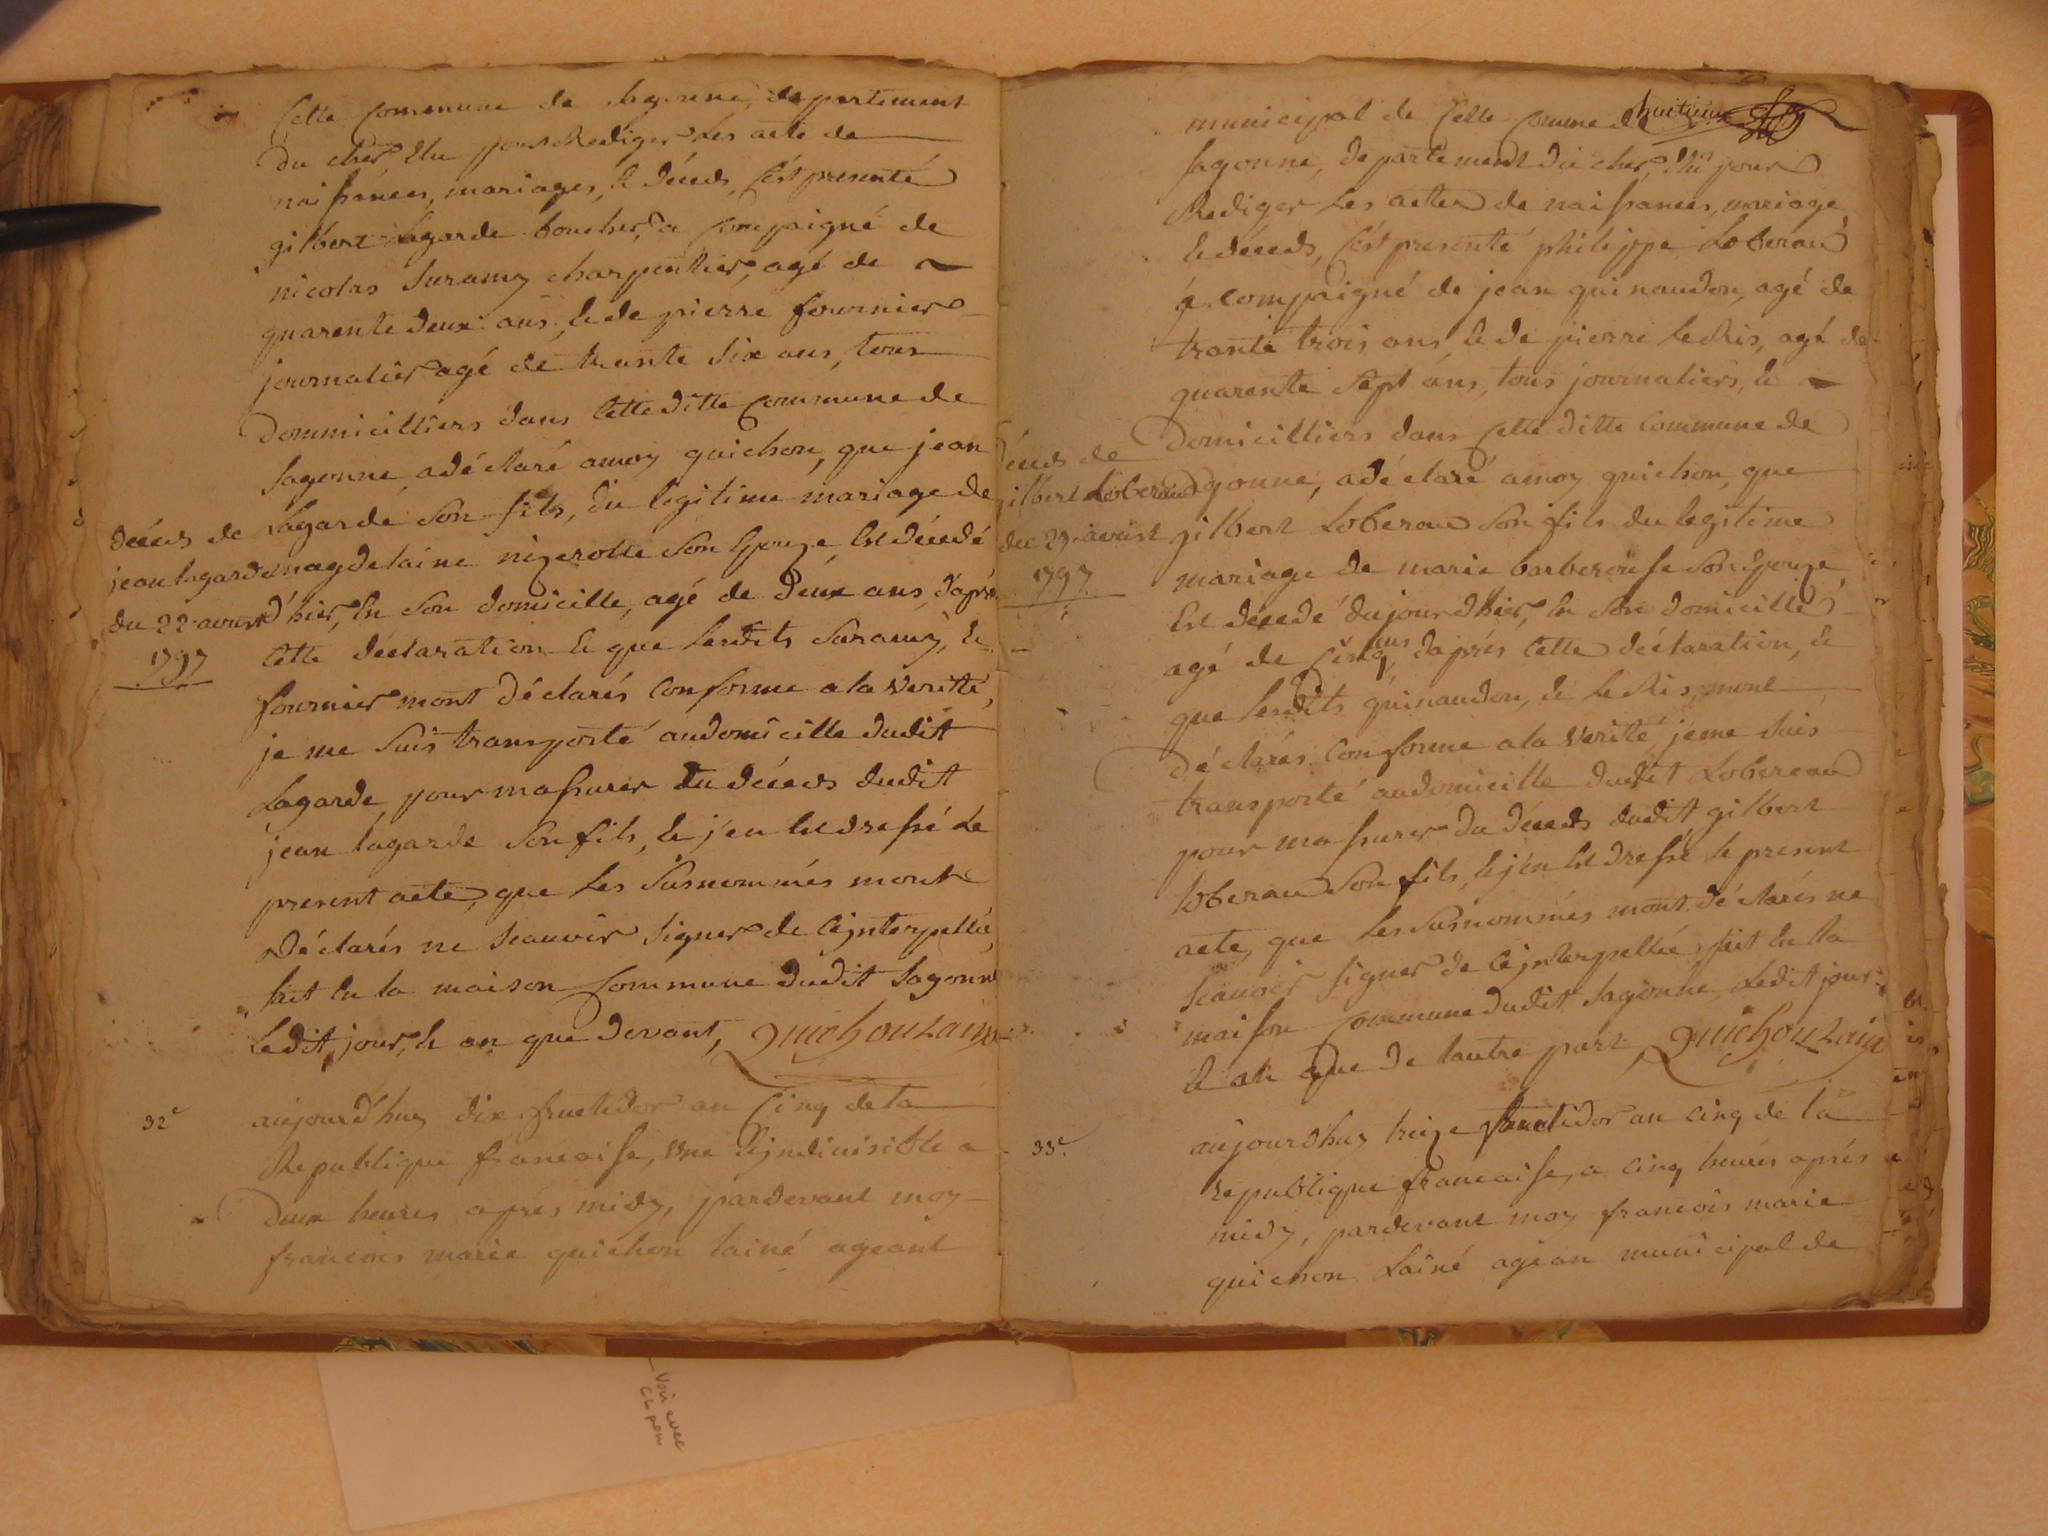 Cette Commune de Sagonne, departement
du cher Elu pour Rediger Les acte de
naissances, mariages, & décèds, s'ést presenté
gilbert Lagarde boucher, a compaigné de
nicolas Suramy charpentier, agé de
quarente deux ans, & de pierre fournier
journalier agé de trante six ans, tous
dommicilliers dans Cette ditte commune de
Sagonne, a dé claré a moy guichon, que jean
Lagarde son fils, du legitime mariage de
magdelaine nizerolle son Epouze, Est décedé
d'hier, En son domicille, agé de deux ans, d'aprés
Cette déclaration & que lesdits Suramy, &
fournier mont déclarés conforme a la verité,
je me suis transporté au domicille dudit
Lagarde, pour massurer du décèds dudit
jean lagarde son fils, & j'en Est dressé Le
present acte, que Les susnommés mont
déclarés ne scauvoir signer de ce jnterpellée,
fait En la maison Commune dudit Sagonne
Ledit jour, & an que devant, Guichon Lainé
décès de
jean lagarde
du 22 avoust
1797
32e
aujourd'huy dix fructidor an cinq de la
Republique francaise, une & jndivisible a
deux heures aprés midy, pardevant moy
francois marie guichon lainé ageant
huitieme
municipal de Cette commune de
Sagonne, departement du cher, Elu pour
Rediger Les actes de naissances, mariage
& décèds, s'ést presenté philippe Loberau
a compaigné de jean guinaudon, agé de
trante trois ans, & de pierre Le Ris, agé de
quarente sept ans, tous journaliers, &
domicilliers dans Cette ditte commune de
Sagonne, a dé claré a moy guichon, que
gilbert Loberau son fils du legitime
mariage de marie barberousse son Epouze,
Est décedé du jourdhier, En son domicille
agé de cinq ans, daprés Cette déclaration, &
que lesdits guinaudon, & Le Ris, mont
déclarés conforme a la verité, je me suis
transporté au domicille dudit Lobereau
pour massurer du décèds dudit gilbert
loberau son fils, & j'en Est dressé le present
acte, que Les susnommés mont déclarés ne
scauvoir signer de ce jnterpellée, fait En la
maison commune dudit Sagonne, Ledit jour
& an que de lautre part, Guichon Lainé
décès de
gilbert Loberau
du 27 avoust
1797
33e.
aujourdhuy treize fructidor an cinq de la
republique francaise, a cinq heures aprés
midy, pardevant moy francois marie
guichon Lainé agean municipal de
Voir avec